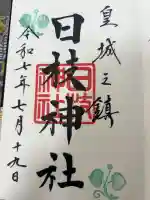 皇城之鎮
日枝神社
令和七年七月十九日